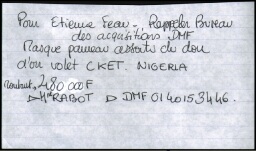 Pour Etienne Feau - Rappeler Bureau
des acquisitions DMF
Masque panneau assorti du don
d'un volet CKET. NIGERIA
Montant. 480 000 F
→ Mr RABOT → DMF 0140153446.